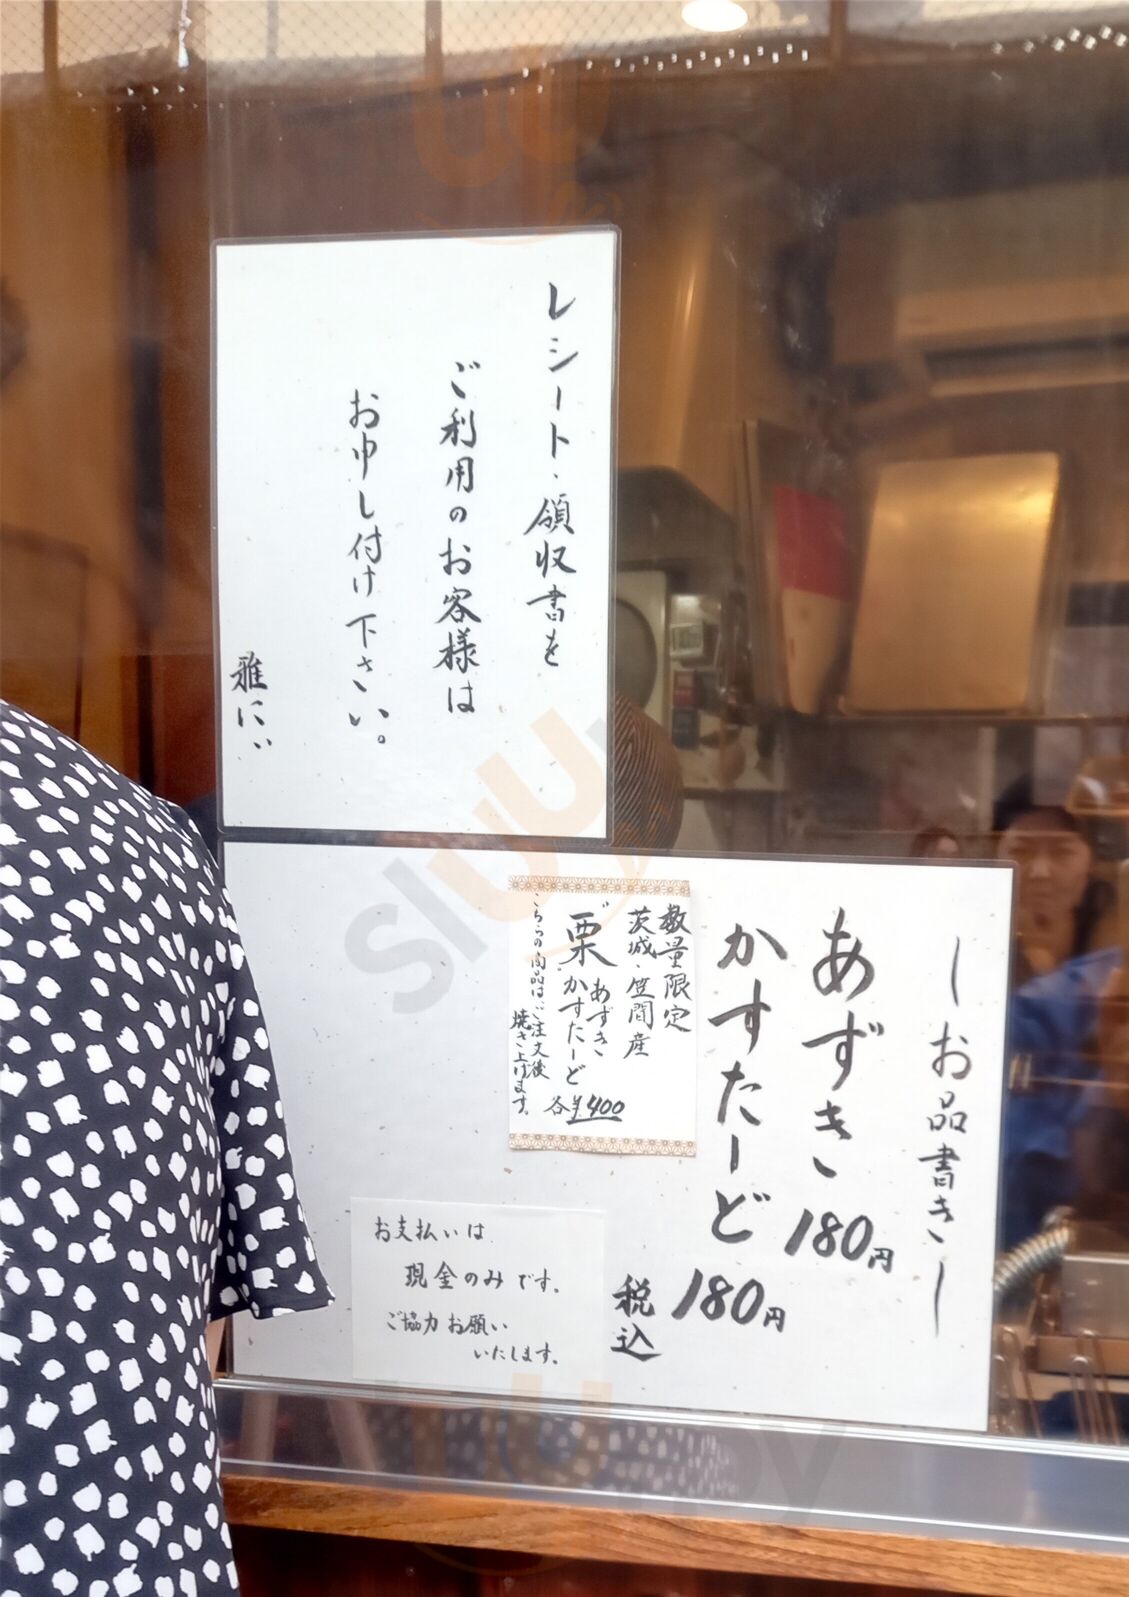 レシート・領収書を
ご利用のお客様は
お申し付け下さい。
雅に
ーお品書きー
あずき 180円
かすたーど 180円
税込
数量限定
茨城・笠間産
栗 あずき
かすたーど
各¥400
こちらの商品はご注文後
焼き上げます。
お支払いは
現金のみです。
ご協力お願い
いたします。